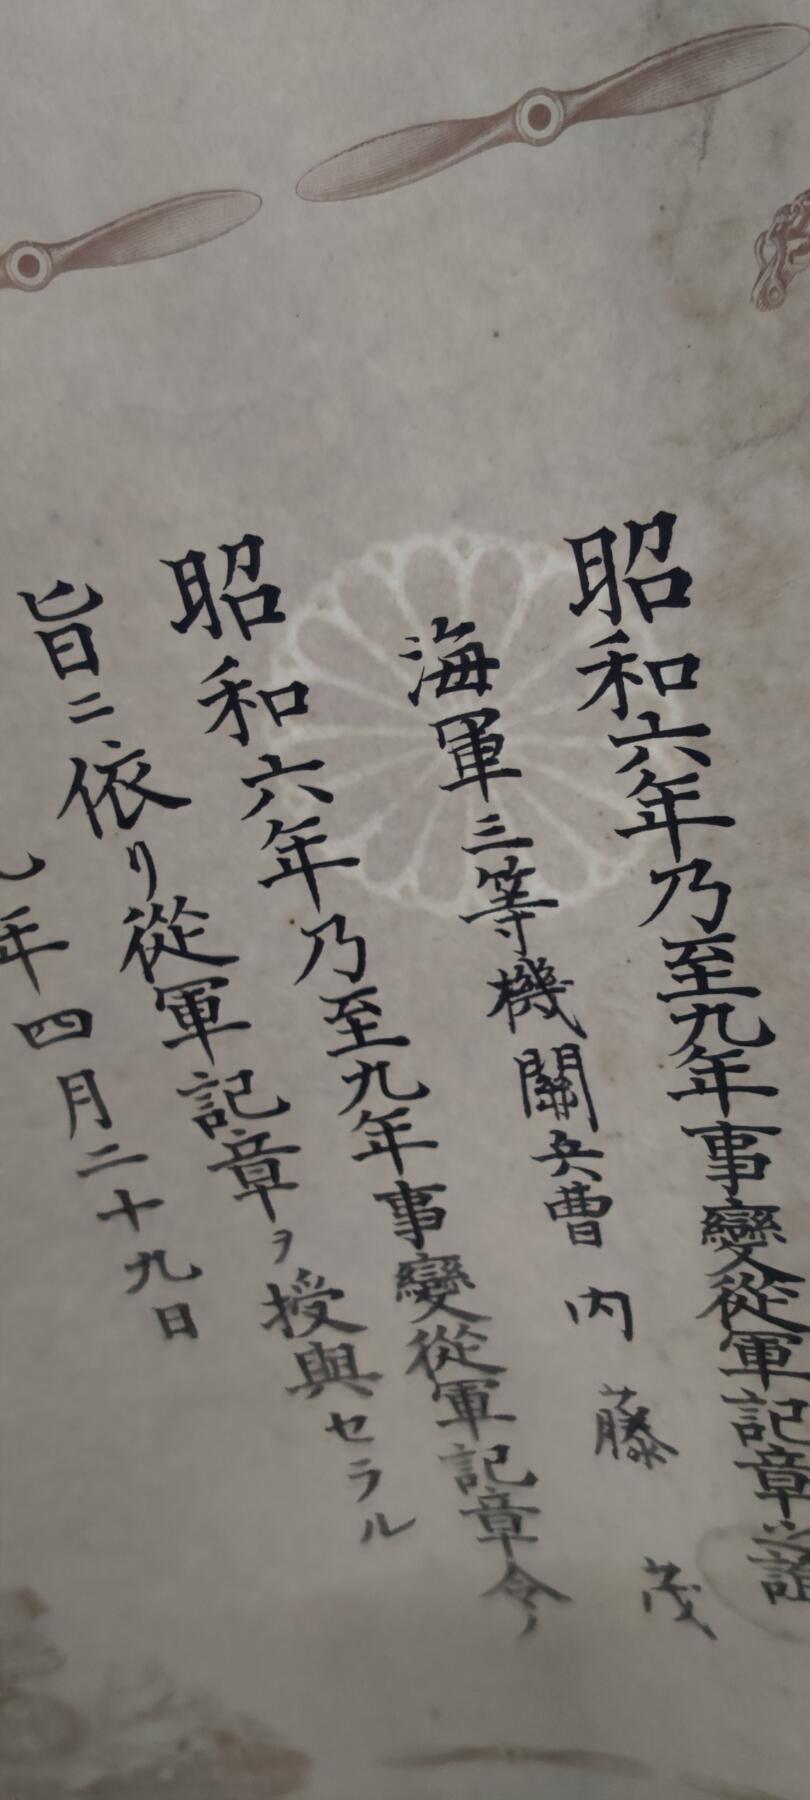 昭和六年乃至九年事變從軍記章之證
海軍三等機關兵曹 内藤茂
昭和六年乃至九年事變從軍記章令ノ
旨ニ依リ從軍記章ヲ授與セラル
年四月二十九日